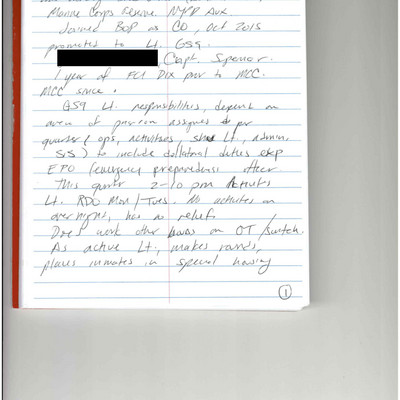 Marine Corps Reserve NYPD Aux.
Joined BOP as CO, Oct 2015
promoted to Lt. GS9.
, Capt. Superior.
1 year of FCI DIX prior to MCC.
MCC since.
GS9 Lt. responsibilities, depends on
area of prison assigned per
quarter (ops, activities, shu Lt, admin,
SIS) to include collateral duties
EPO (emergency preparedness officer.
This quarter 2-10 pm Activities
Lt. RDO Mon/Tues. No activities on
overnight, has no relief.
Does work other hours on OT/switch.
As active Lt., makes rounds,
places inmates in special housing
1